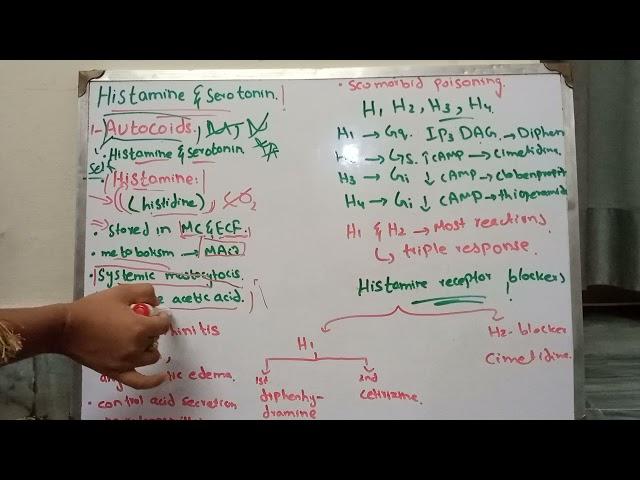 Histamine & Serotonin.
1- Autocoids.
Histamine & serotonin
Histamine:
(histidine), CO2
• stored in MC & ECF.
• metabolism → MAO
• Systemic mastocytocis.
acetic acid.
edema.
• control acid secretion
• Scomorbid poisoning.
H1 H2, H3, H4.
H1 → Gq. IP3 DAG. → Diphen
→ Gs. ↑cAMP → Cimetidine.
H3 → Gi ↓ cAMP → clobenpropit
H4 → Gi ↓ cAMP → thioperamide
H1 & H2 → Most reactions
↳ triple response.
Histamine receptor blockers
H1
H2- blocker
Cimetidine.
1st
diphenhy-
dramine
2nd